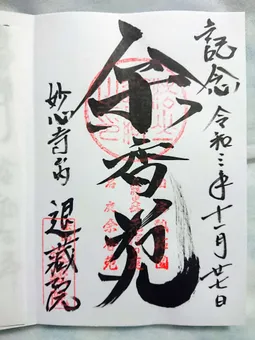 記念 令和三年十一月廿七日
余香苑
妙心寺内 退蔵院